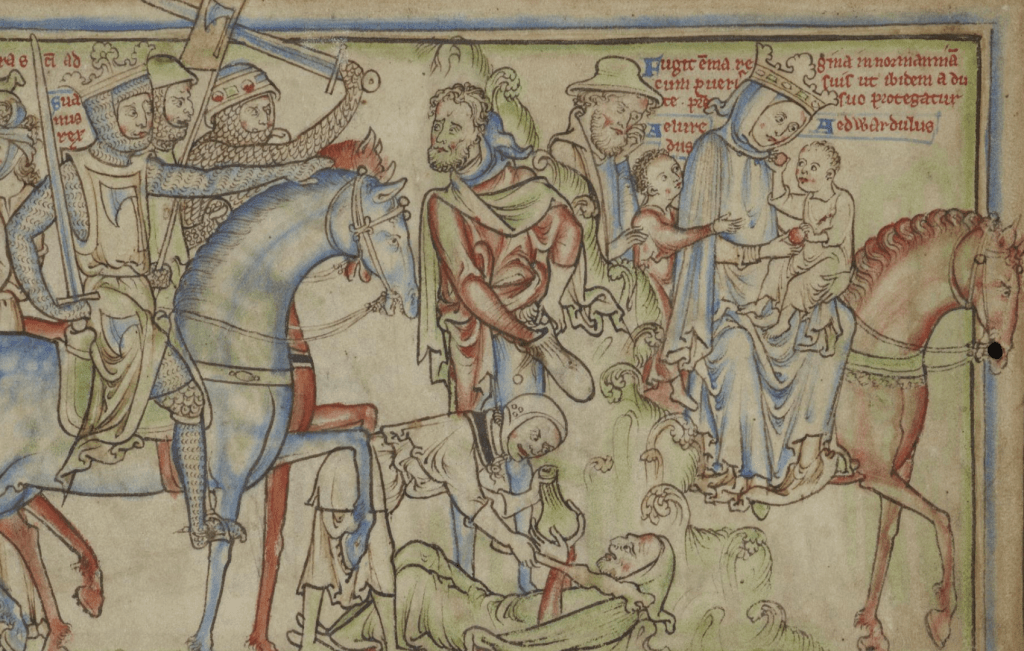 ras
ad
Sua
nus
rex
Fugit e͞ma re
gina in normanniā
cum pueri
suis ut ibidem a du
ce
suo protegatur
Aelure
dus
Aedwardulus